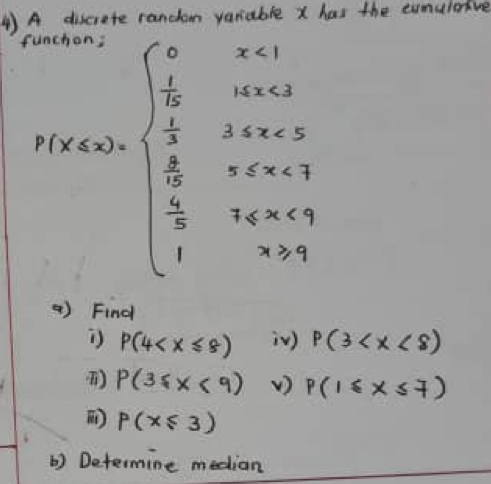 4) A discrete random variable X has the cumulative
function;
P(X ≤ x) =
0 x < 1
1/15 1 ≤ x < 3
1/3 3 ≤ x < 5
8/15 5 ≤ x < 7
4/5 7 ≤ x < 9
1 x ≥ 9
a) Find
i) P(4 < X ≤ 8) iv) P(3 < X < 8)
ii) P(3 ≤ X < 9) v) P(1 ≤ X ≤ 7)
iii) P(X ≤ 3)
b) Determine median